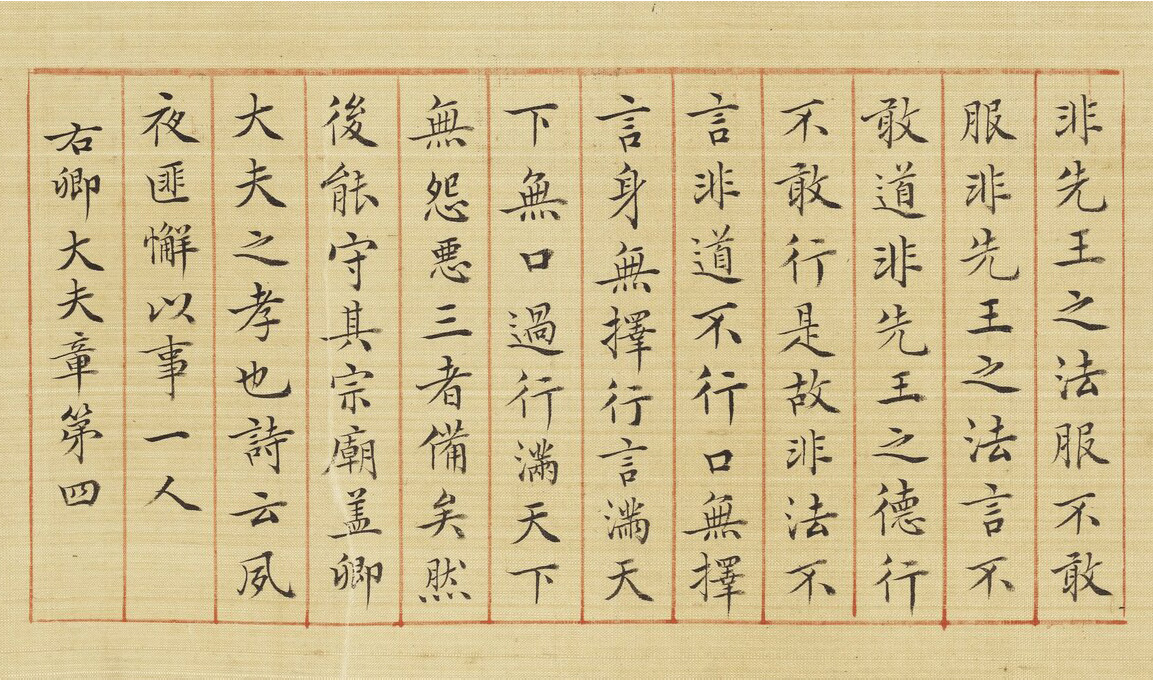 非先王之法服不敢
服非先王之法言不
敢道非先王之德行
不敢行是故非法不
言非道不行口無擇
言身無擇行言滿天
下無口過行滿天下
無怨悪三者備矣然
後能守其宗廟盖卿
大夫之孝也詩云夙
夜匪懈以事一人
右卿大夫章第四